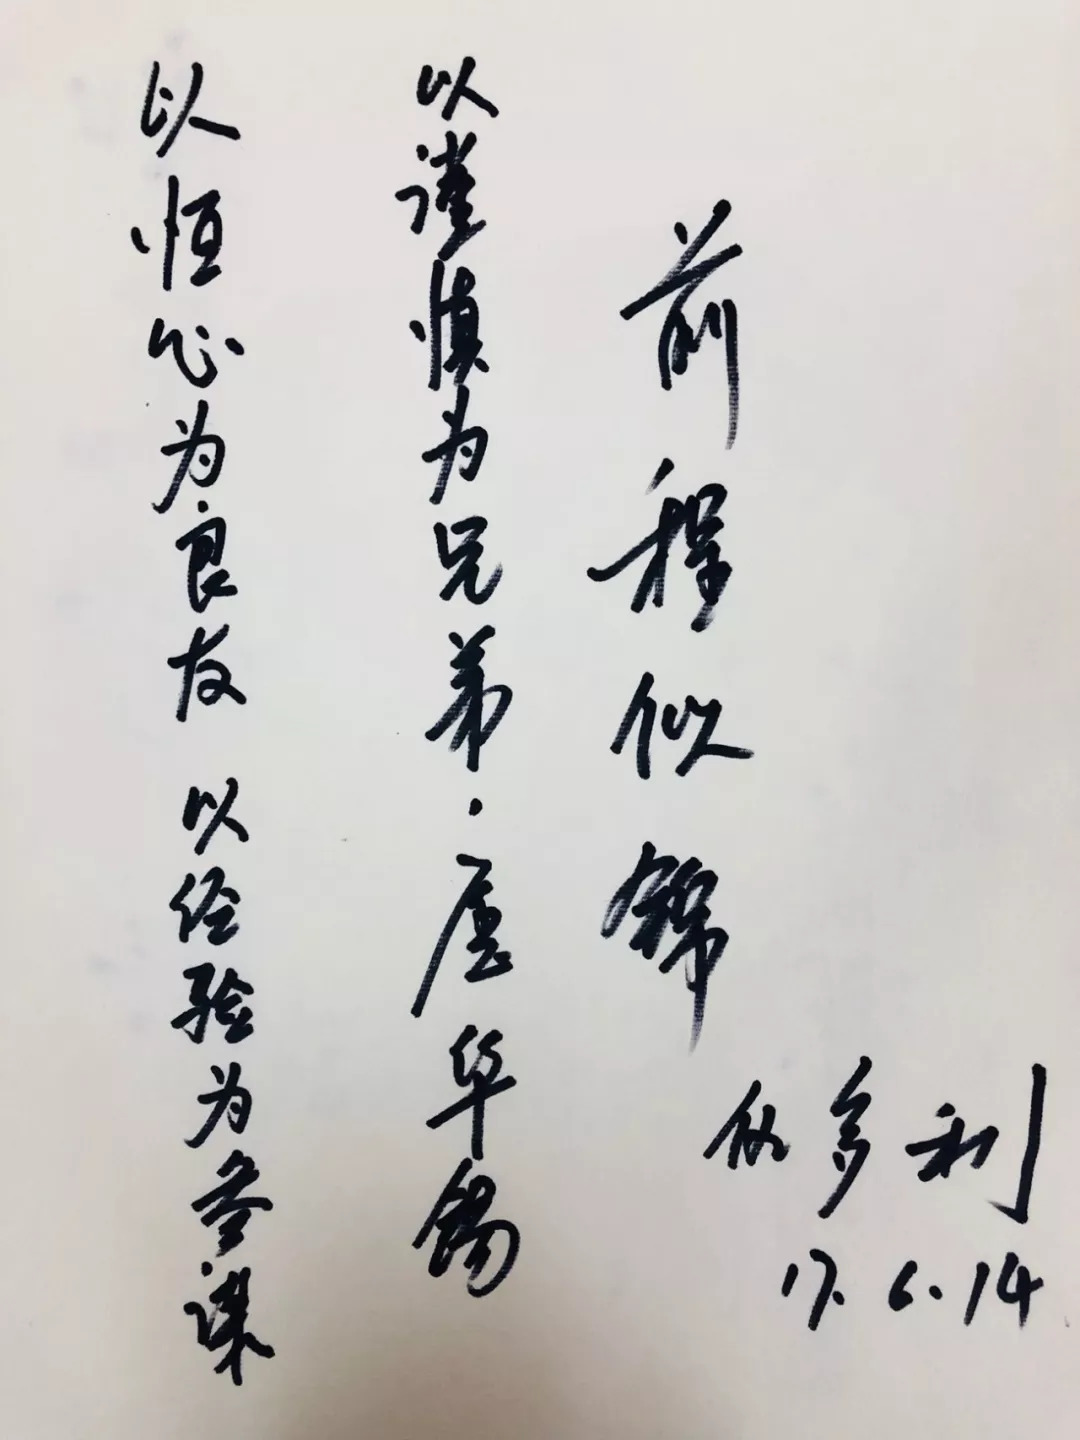 以恒心为良友 以经验为参谋
以谨慎为兄弟·华锡
前程似锦
多利
17.6.14